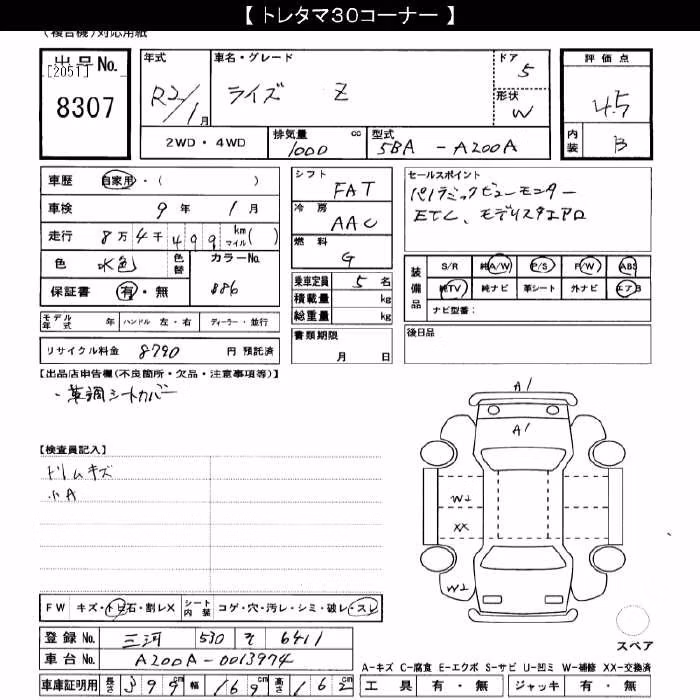 【 トレタマ30コーナー 】
(複合機)対応用紙
出品No.
[2051]
8307
年式
R2/1月
車名・グレード
ライズ Z
ドア
5
形状
W
評価点
4.5
内装
B
2WD・4WD
排気量 cc
1000
型式
5BA - A200A
車歴 自家用・( )
車検 9年 1月
走行 8万4千499 km マイル( )
色 水色 色替 カラーNo.
保証書 有・無 886
モデル年式 年 ハンドル 左・右 ディーラー・並行
リサイクル料金 8790 円 預託済
シフト
FAT
冷房
AAC
燃料
G
乗車定員 5名
積載量 kg
総重量 kg
書類期限
月 日
セールスポイント
パノラミックビューモニター
ETC、モデリスタエアロ
装備品
S/R 純A/W P/S P/W ABS
純TV 純ナビ 革シート 外ナビ エアB
ナビ型番:
後日品
【出品店申告欄(不良箇所・欠品・注意事項等)】
・革調シートカバー
【検査員記入】
トリムキズ
小A
A1
A1
W2
XX
W2
スペア
FW キズ・トビ石・割レX シート内装 コゲ・穴・汚レ・シミ・破レ・スレ
登録No. 三河 530 そ 6411
車台No. A200A-0013974
車庫証明用 長さ 399cm 幅 169cm 高さ 162cm
A-キズ C-腐食 E-エクボ S-サビ U-凹ミ W-補修 XX-交換済
工具 有・無 ジャッキ 有・無